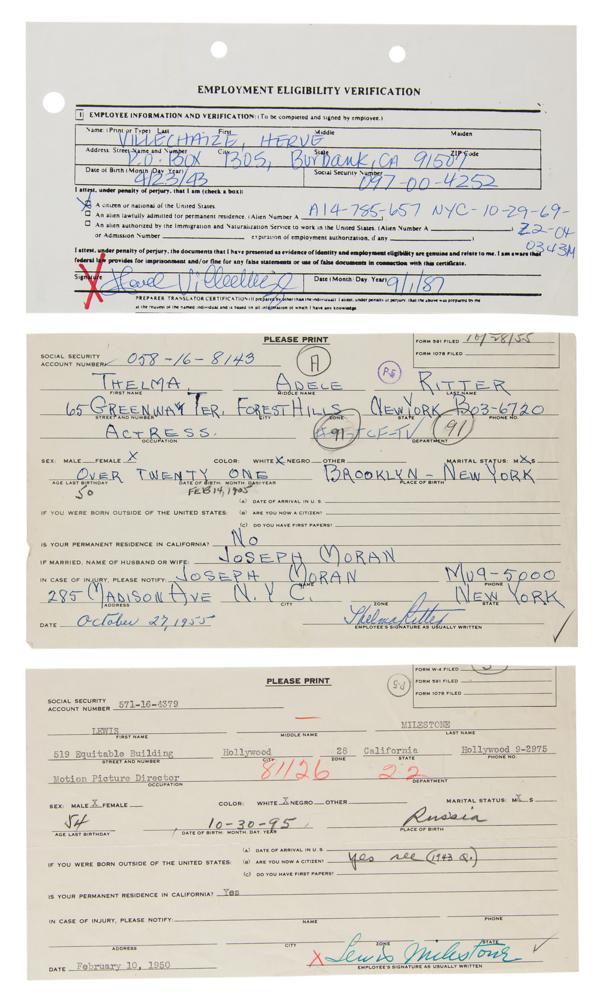 EMPLOYMENT ELIGIBILITY VERIFICATION
1 EMPLOYEE INFORMATION AND VERIFICATION: (To be completed and signed by employee.)
Name: (Print or Type) Last First Middle Maiden
VILLECHAIZE, HERVE
Address: Street Name and Number City State ZIP Code
P.O. BOX 1305, Burbank, CA 91507
Date of Birth (Month Day Year) Social Security Number
4/23/43
I attest, under penalty of perjury, that I am (check a box):
A citizen or national of the United States.
An alien lawfully admitted for permanent residence. (Alien Number A
An alien authorized by the Immigration and Naturalization Service to work in the United States. (Alien Number A
or Admission Number expiration of employment authorization, if any
I attest, under penalty of perjury, the documents that I have presented as evidence of identity and employment eligibility are genuine and relate to me. I am aware that
federal law provides for imprisonment and/or fine for any false statements or use of false documents in connection with this certificate.
Signature Date (Month Day Year) 9/1/87
PREPARER TRANSLATOR CERTIFICATION
PLEASE PRINT
FORM 591 FILED 10/28/55
FORM 1078 FILED
SOCIAL SECURITY
ACCOUNT NUMBER 058-16-8143
A
P-5
THELMA ADELE RITTER
FIRST NAME MIDDLE NAME LAST NAME
65 GREENWAY TER. FOREST HILLS NEW YORK BO3-6720
STREET AND NUMBER CITY STATE PHONE NO.
ACTRESS. 91 TCF-TV 91
OCCUPATION DEPARTMENT
SEX: MALE FEMALE X COLOR: WHITE X NEGRO OTHER MARITAL STATUS: M X S
OVER TWENTY ONE BROOKLYN - NEW YORK
AGE LAST BIRTHDAY DATE OF BIRTH MONTH DAY YEAR PLACE OF BIRTH
50 FEB 14, 1905
(A) DATE OF ARRIVAL IN U S
IF YOU WERE BORN OUTSIDE OF THE UNITED STATES: (B) ARE YOU NOW A CITIZEN?
(C) DO YOU HAVE FIRST PAPERS?
IS YOUR PERMANENT RESIDENCE IN CALIFORNIA? NO
IF MARRIED, NAME OF HUSBAND OR WIFE: JOSEPH MORAN
IN CASE OF INJURY, PLEASE NOTIFY: JOSEPH MORAN MU9-5000
NAME PHONE
285 MADISON AVE N.Y.C. NEW YORK
ADDRESS CITY ZONE STATE
DATE October 27, 1955 Thelma Ritter
EMPLOYEE'S SIGNATURE AS USUALLY WRITTEN
PLEASE PRINT
FORM W-4 FILED
FORM 591 FILED
FORM 1078 FILED
P-5
SOCIAL SECURITY
ACCOUNT NUMBER 571-16-4379
LEWIS MILESTONE
FIRST NAME MIDDLE NAME LAST NAME
519 Equitable Building Hollywood 28 California Hollywood 9-2975
STREET AND NUMBER CITY ZONE STATE PHONE NO.
Motion Picture Director 81126 22
OCCUPATION DEPARTMENT
SEX: MALE X FEMALE COLOR: WHITE X NEGRO OTHER MARITAL STATUS: M X S
54 10-30-95 Russia
AGE LAST BIRTHDAY DATE OF BIRTH MONTH DAY YEAR PLACE OF BIRTH
(A) DATE OF ARRIVAL IN U S
IF YOU WERE BORN OUTSIDE OF THE UNITED STATES: (B) ARE YOU NOW A CITIZEN? yes see (1943 Q.)
(C) DO YOU HAVE FIRST PAPERS?
IS YOUR PERMANENT RESIDENCE IN CALIFORNIA? Yes
IN CASE OF INJURY, PLEASE NOTIFY:
NAME PHONE
ADDRESS CITY ZONE STATE
DATE February 10, 1950 X Lewis Milestone
EMPLOYEE'S SIGNATURE AS USUALLY WRITTEN